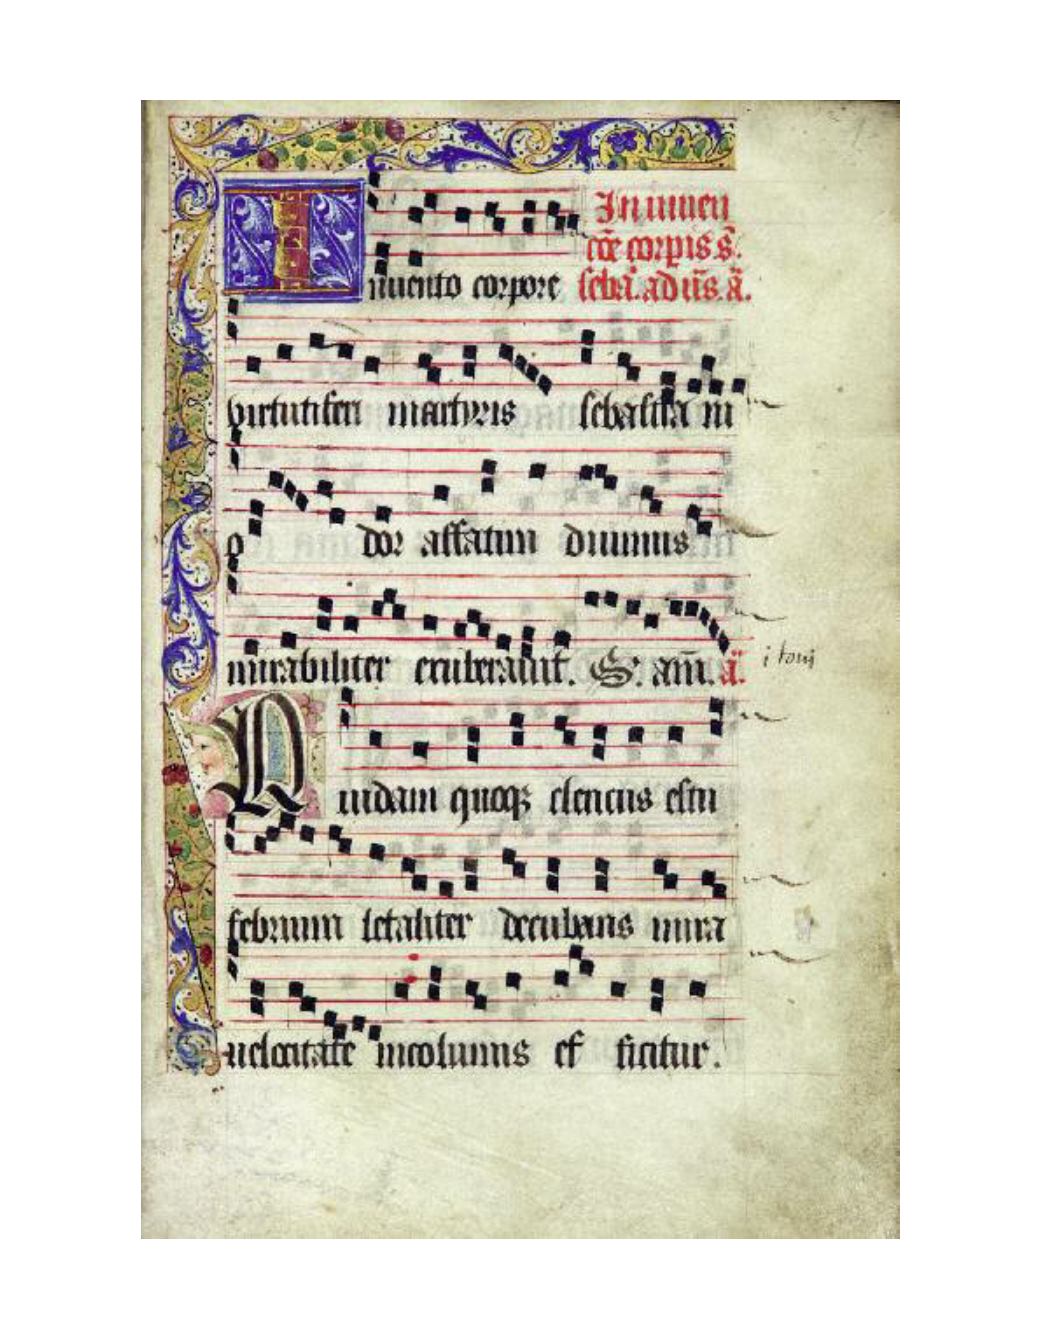 In inuen
cōe corpis s.
Inuento corpore seba. ad us. a.
virtutiferi martyris sebastiani
odor affatim diuinus
mirabiliter exuberauit. S. am. a.
i toni
Quidam quoq; clericus estu
febrium letaliter decubans mira
uelocitate incolumis efficitur.